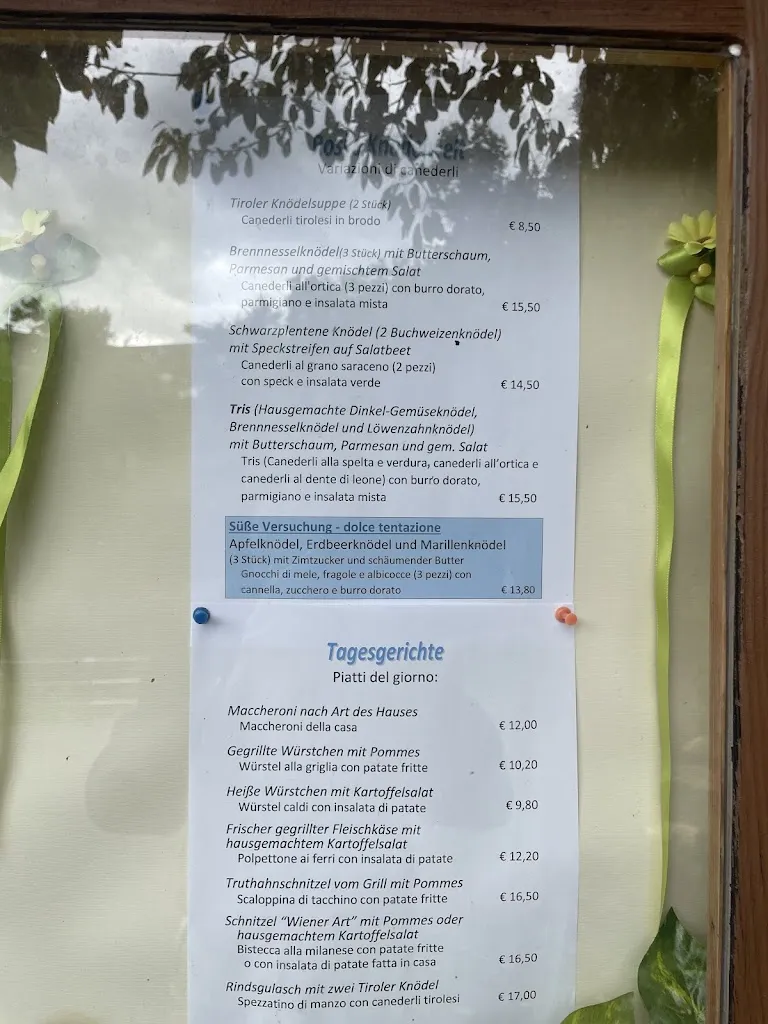 Variazioni di canederli
Tiroler Knödelsuppe (2 Stück)
Canederli tirolesi in brodo
€ 8,50
Brennnesselknödel(3 Stück) mit Butterschaum,
Parmesan und gemischtem Salat
Canederli all'ortica (3 pezzi) con burro dorato,
parmigiano e insalata mista
€ 15,50
Schwarzplentene Knödel (2 Buchweizenknödel)
mit Speckstreifen auf Salatbeet
Canederli al grano saraceno (2 pezzi)
con speck e insalata verde
€ 14,50
Tris (Hausgemachte Dinkel-Gemüseknödel,
Brennnesselknödel und Löwenzahnknödel)
mit Butterschaum, Parmesan und gem. Salat
Tris (Canederli alla spelta e verdura, canederli all'ortica e
canederli al dente di leone) con burro dorato,
parmigiano e insalata mista
€ 15,50
Süße Versuchung - dolce tentazione
Apfelknödel, Erdbeerknödel und Marillenknödel
(3 Stück) mit Zimtzucker und schäumender Butter
Gnocchi di mele, fragole e albicocce (3 pezzi) con
cannella, zucchero e burro dorato
€ 13,80
Tagesgerichte
Piatti del giorno:
Maccheroni nach Art des Hauses
Maccheroni della casa
€ 12,00
Gegrillte Würstchen mit Pommes
Würstel alla griglia con patate fritte
€ 10,20
Heiße Würstchen mit Kartoffelsalat
Würstel caldi con insalata di patate
€ 9,80
Frischer gegrillter Fleischkäse mit
hausgemachtem Kartoffelsalat
Polpettone ai ferri con insalata di patate
€ 12,20
Truthahnschnitzel vom Grill mit Pommes
Scaloppina di tacchino con patate fritte
€ 16,50
Schnitzel "Wiener Art" mit Pommes oder
hausgemachtem Kartoffelsalat
Bistecca alla milanese con patate fritte
o con insalata di patate fatta in casa
€ 16,50
Rindsgulasch mit zwei Tiroler Knödel
Spezzatino di manzo con canederli tirolesi
€ 17,00